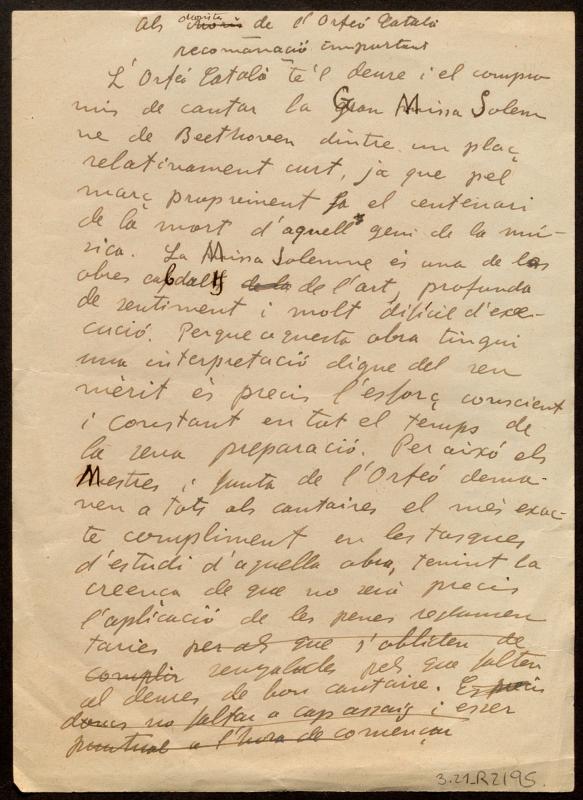 Als choristes de l'Orfeó Català
recomanació important
L'Orfeó Català té'l deure i el compro-
mis de cantar la Gran Missa Solem
ne de Beethoven dintre un plaç
relativament curt, ja que pel
març propvinent fa el centenari
de la mort d'aquell geni de la mú-
sica. La Missa Solemne és una de les
obres cabdals de la de l'art, profunda
de sentiment i molt difícil d'exe-
cució. Perque aquesta obra tingui
una interpretació digne del seu
mèrit és precis l'esforç conscient
i constant en tot el temps de
la seva preparació. Per aixó els
Mestres i Junta de l'Orfeó dema-
nen a tots als cantaires el més exac-
te compliment en les tasques
d'estudi d'aquella obra, tenint la
creença de que no serà precis
l'aplicació de les penes reglamen
taries per als que s'obliden de
complir senyalades pels que falten
al deures de bon cantaire. Es precis
doncs no faltar a cap assaig i esser
puntual a l'hora de començar
3.21_R2195.